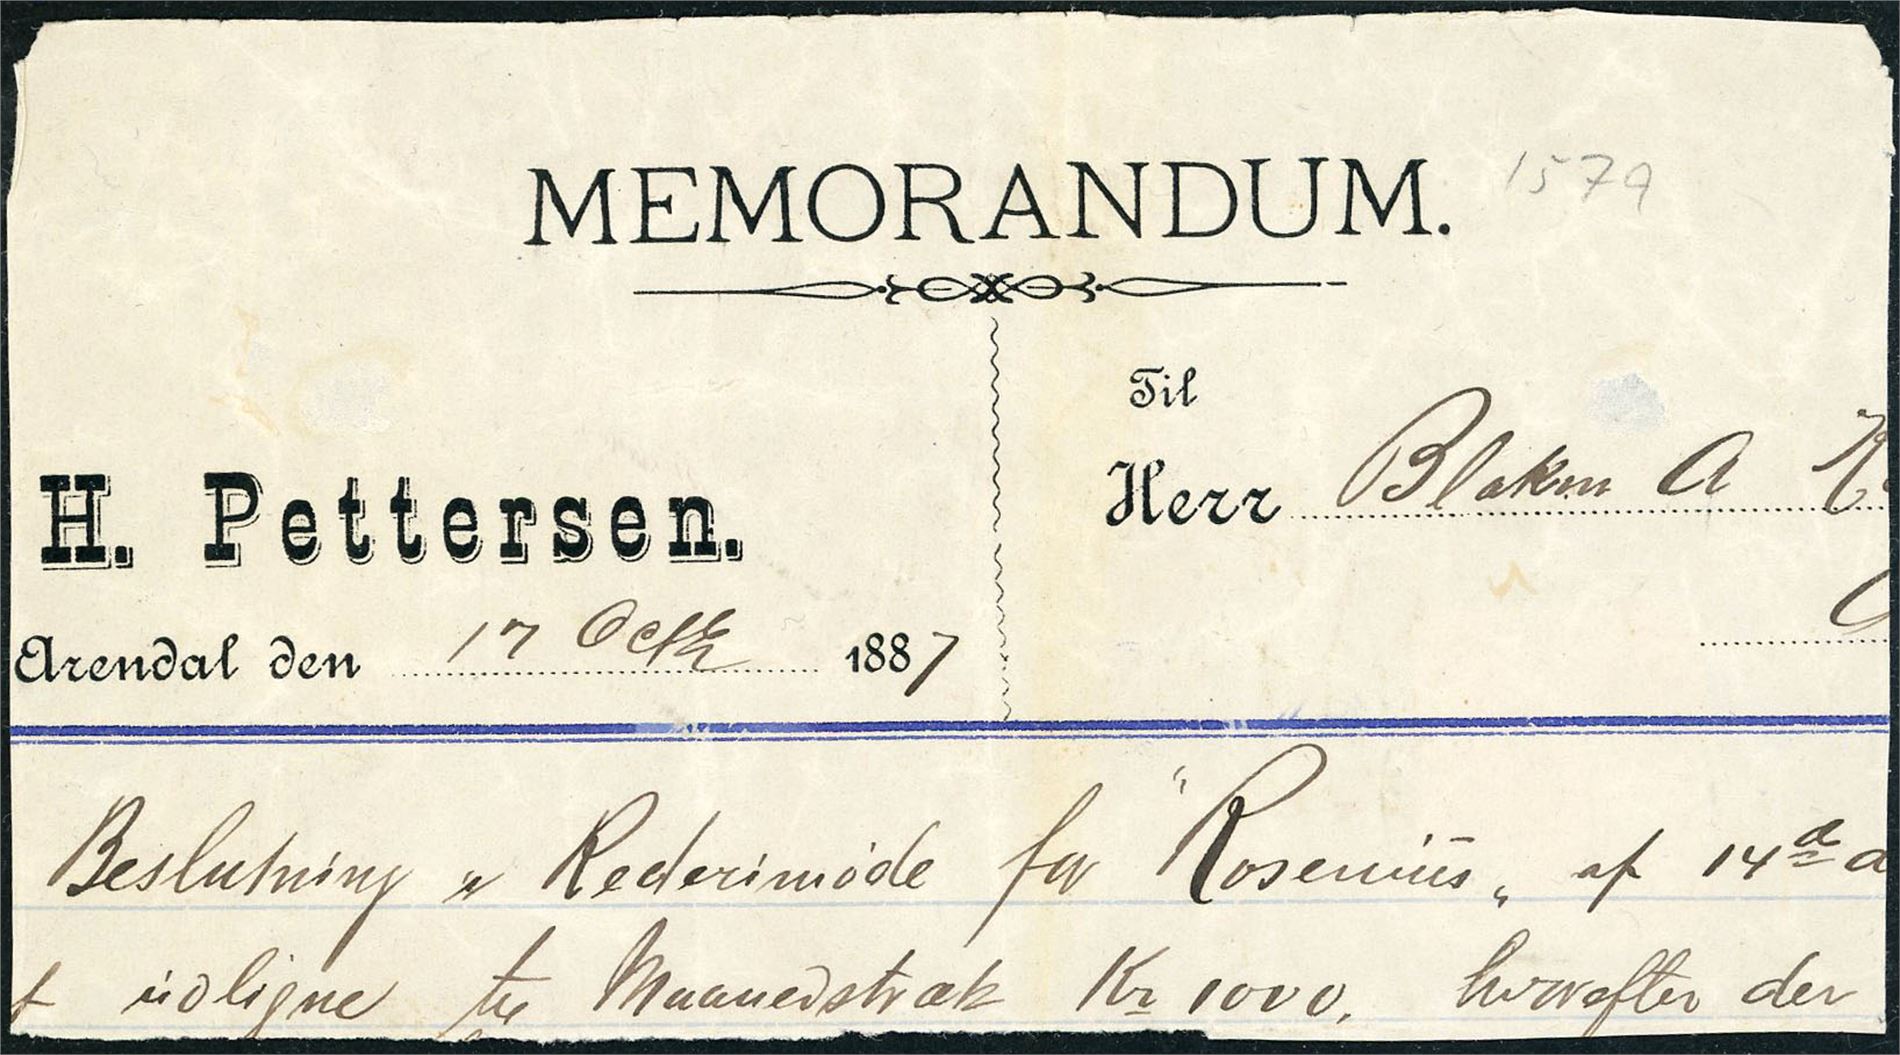 MEMORANDUM. 1579
Til
Herr Blakm A
H. Pettersen.
Arendal den 17 Octb 1887
Beslutning i Rederimöde for "Rosenius„ af 14de
udligne til Maanedstræk Kr 1000, hvorefter der